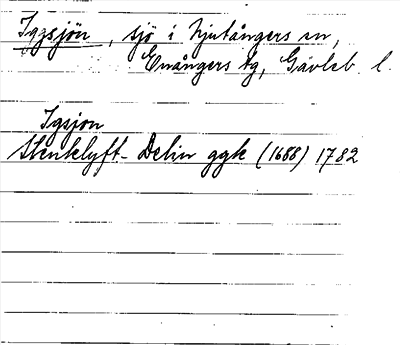 Iggsjön, sjö i Njutångers sn,
Enångers tg, Gävleb. l.
Igsjon
Stenklyft- Delin ggk (1688) 1782